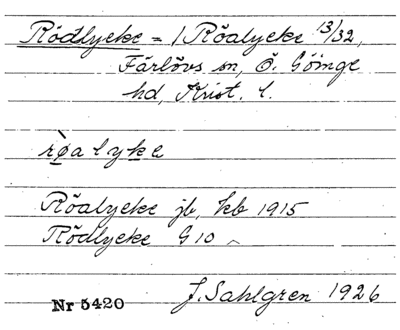 Rödlycke = / Röalycke 13/32,
Färlövs sn, Ö. Göinge
hd, Krist. l.
rø̀alyke
Röalycke jb, kb 1915
Rödlycke G 10
Nr 5420 J. Sahlgren 1926